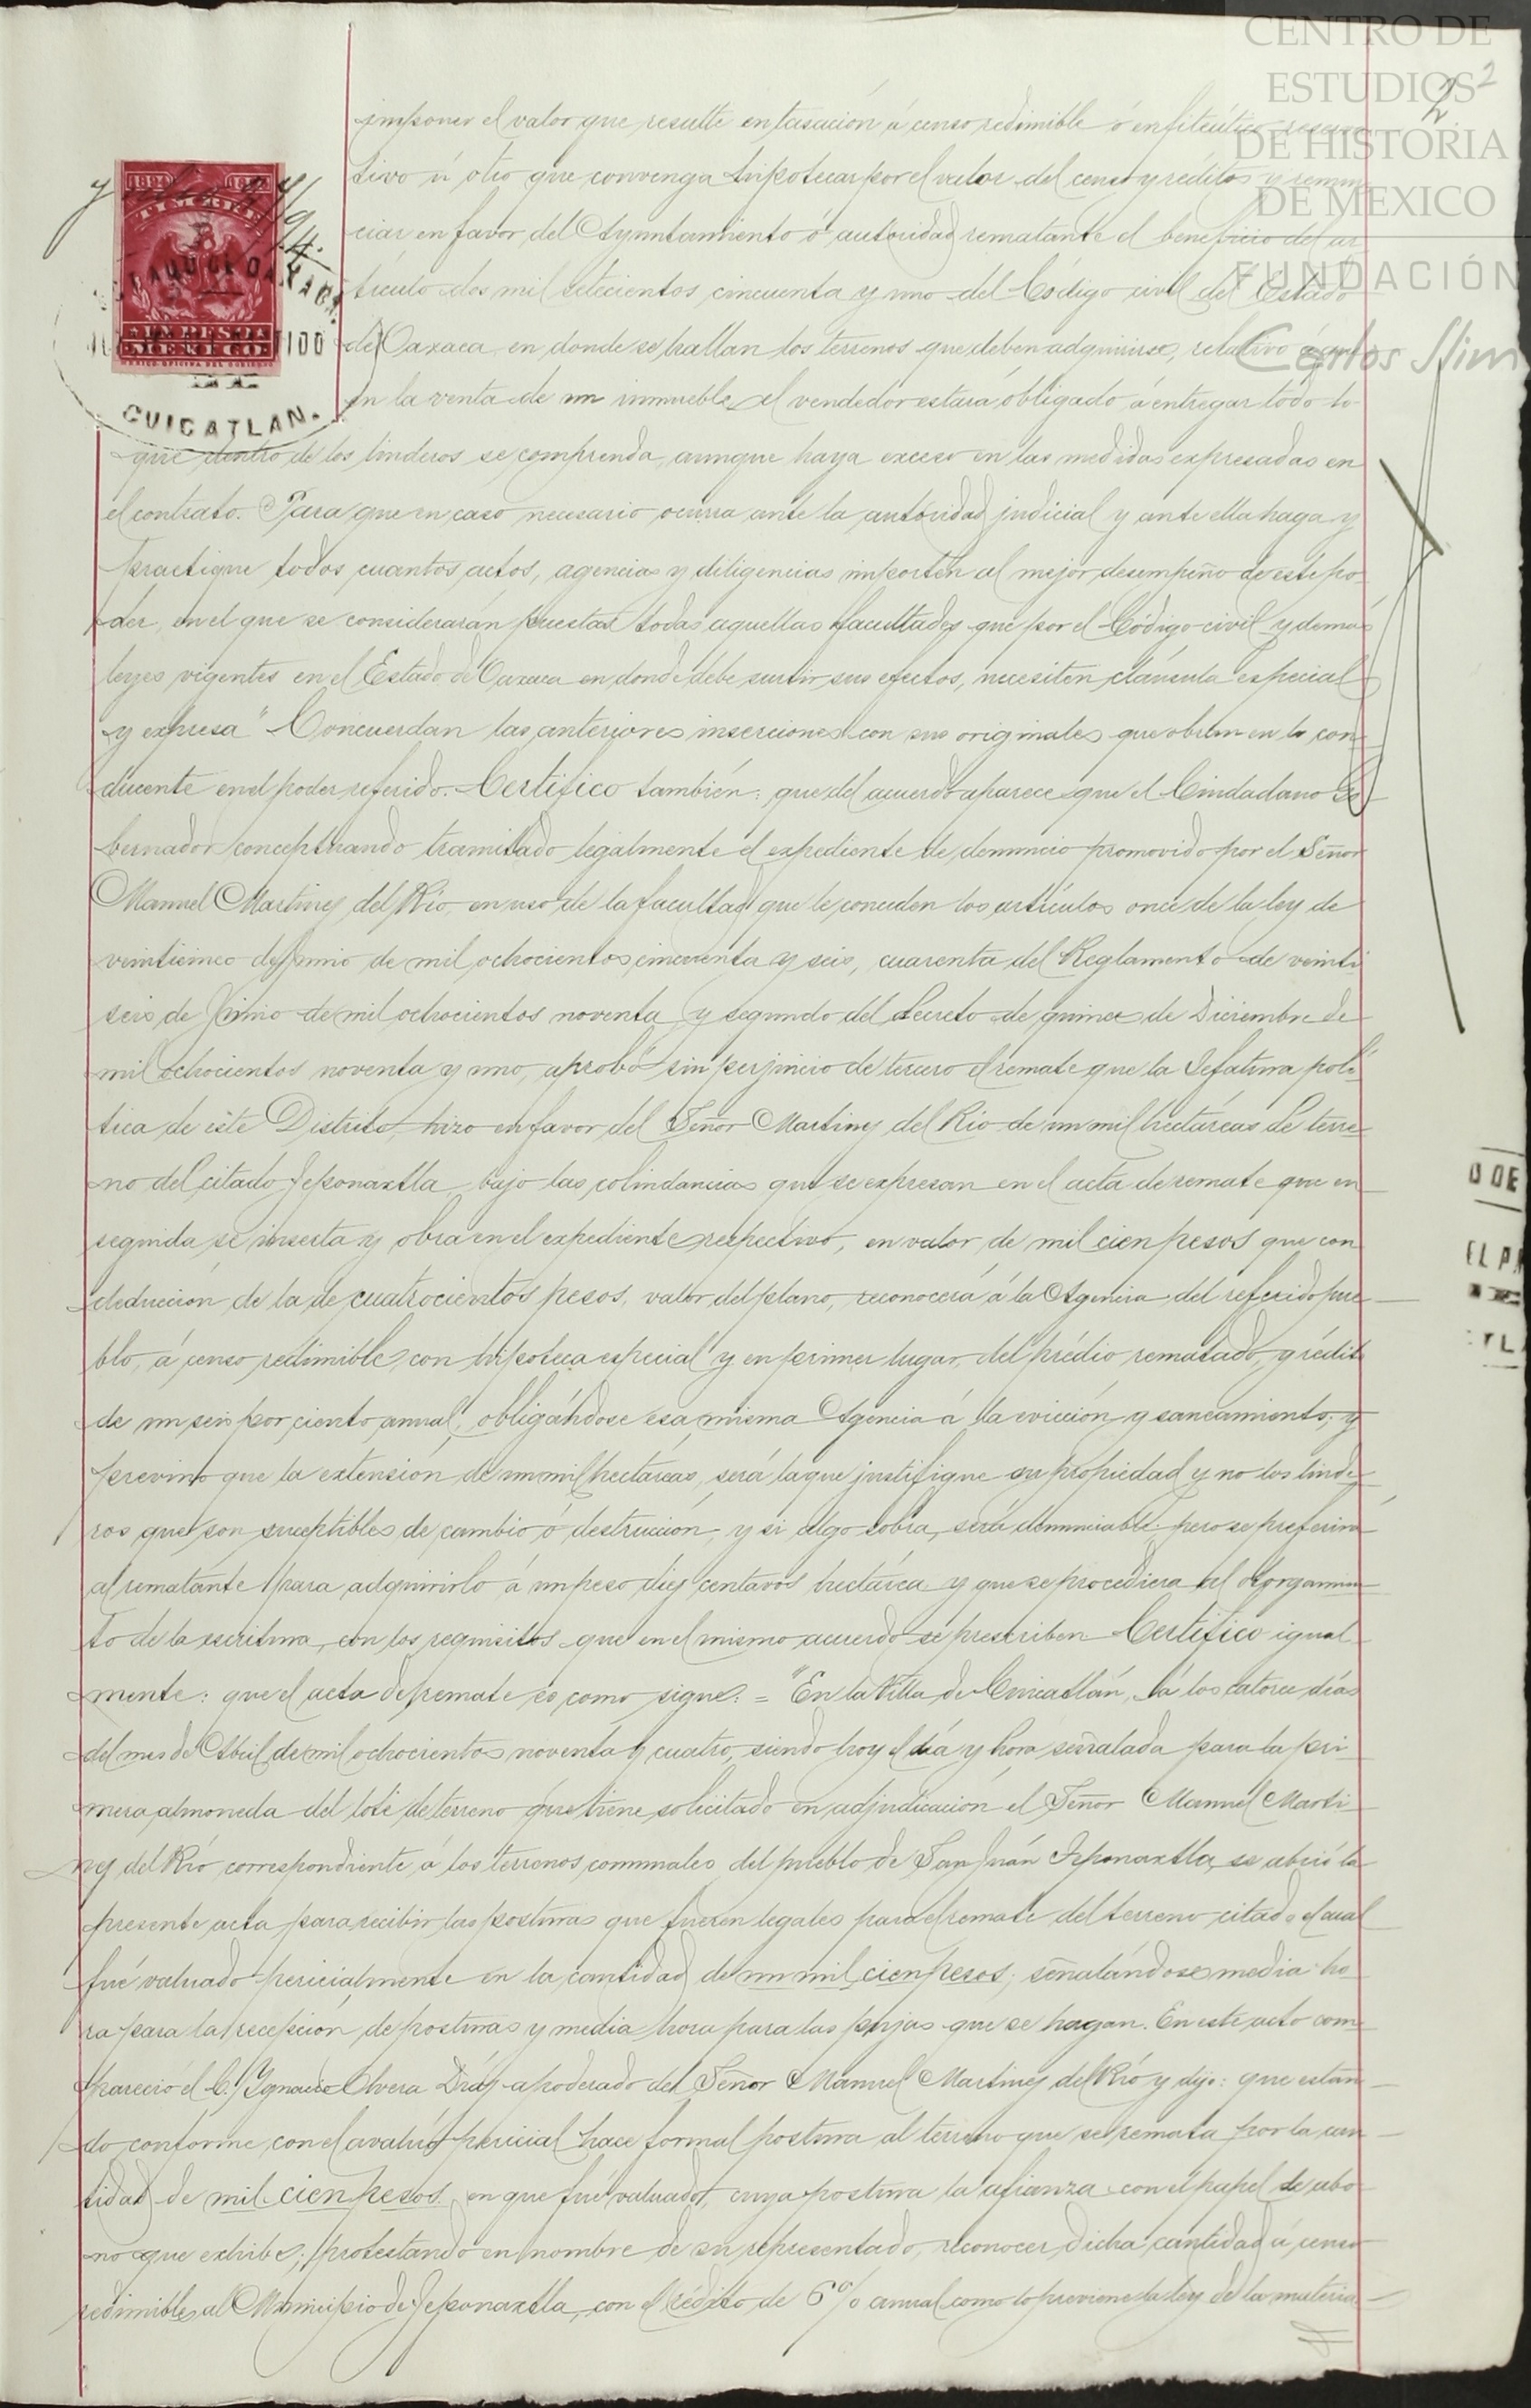 CENTRO DE
ESTUDIOS
DE HISTORIA
DE MEXICO
FUNDACIÓN
Carlos Slim
2
imponer el valor que resulte en tasación á censo redimible ó enfitéutico reserva
tivo ú otro que convenga hipotecar por el valor del censo y réditos y renun
ciar en favor del Ayuntamiento ó autoridad rematante el beneficio del ar
tículo dos mil setecientos cincuenta y uno del Código civil del Estado
de Oaxaca en donde se hallan los terrenos que deben adquirirse, relativo á que
en la venta de un inmueble el vendedor estará obligado á entregar todo lo
que dentro de los linderos se comprenda, aunque haya exceso en las medidas expresadas en
el contrato. Para que en caso necesario ocurra ante la autoridad judicial y ante ella haga y
practique todos cuantos actos, agencias y diligencias importen al mejor desempeño de este po
der, en el que se considerarán puestas todas aquellas facultades que por el Código civil y demás
leyes vigentes en el Estado de Oaxaca en donde debe surtir sus efectos, necesiten cláusula especial
y expresa" Concuerdan las anteriores inserciones con sus originales que obran en lo con
ducente en el poder referido. Certifico también: que del acuerdo aparece que el Ciudadano Go
bernador conceptuando tramitado legalmente el expediente de denuncio promovido por el Señor
Manuel Martinez del Rio, en uso de la facultad que le conceden los artículos once de la ley de
veinticinco de Junio de mil ochocientos cincuenta y seis, cuarenta del Reglamento de veinti
seis de Junio de mil ochocientos noventa y segundo del Decreto de quince de Diciembre de
mil ochocientos noventa y uno, aprobó sin perjuicio de tercero el remate que la Jefatura polí
tica de este Distrito, hizo en favor del Señor Martinez del Rio de un mil hectáreas de terre
no del citado Teponaxtla bajo las colindancias que se expresan en el acta de remate que en
seguida se inserta y obra en el expediente respectivo, en valor de mil cien pesos que con
deducción de la de cuatrocientos pesos, valor del plano, reconocerá á la Agencia del referido pue
blo, á censo redimible con hipoteca especial y en primer lugar, del prédio rematado, y rédito
de un seis por ciento anual, obligándose esa misma Agencia á la evicción y saneamiento; y
previno que la extensión de un mil hectáreas, será la que justifique su propiedad y no los linde
ros que son suceptibles de cambio ó destrucción, y si algo sobra, será denunciable pero se preferirá
al rematante para adquirirlo á un peso diez centavos hectárea y que se procediera al otorgamien
to de la escritura, con los requisitos que en el mismo acuerdo se prescriben. Certifico igual
mente: que el acta de remate es como sigue: = "En la Villa de Cuicatlán, á los catorce días
del mes de Abril de mil ochocientos noventa y cuatro, siendo hoy el día y hora señalada para la pri
mera almoneda del lote de terreno que tiene solicitado en adjudicación el Señor Manuel Marti
nez del Rió correspondiente á los terrenos comunales del pueblo de San Juán Teponaxtla, se abrió la
presente acta para recibir las posturas que fueren legales para el remate del terreno citado el cual
fué valuado pericialmente en la cantidad de un mil cien pesos; señalándose media ho
ra para la recepción de posturas y media hora para las pujas que se hagan. En este acto com
pareció el C. Ygnacio Olvera Diáz apoderado del Señor Manuel Martinez del Rió y dijo: que estan
do conforme con el avalúo pericial hace formal postura al terreno que se remata por la can
tidad de mil cien pesos en que fué valuado, cuya postura la afianza con el papel de abo
no que exhibe; protestando en nombre de su representado, reconocer dicha cantidad á censo
redimible al Municipio de Teponaxtla, con el rédito de 6% anual como lo previene la ley de la materia
1894
TIMBRE
UN PESO
MEXICO
CUICATLAN.